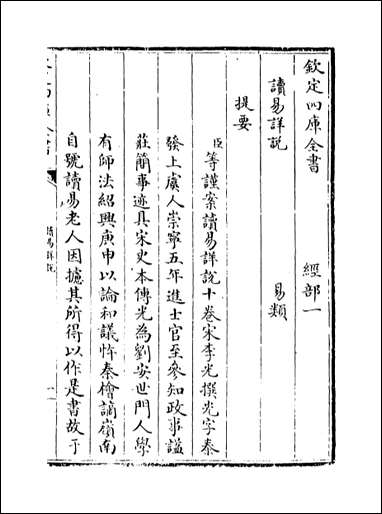 欽定四庫全書　經部一
讀易詳說　易類
提要
臣等謹案讀易詳說十卷宋李光撰光字泰
發上虞人崇寧五年進士官至參知政事諡
莊簡事迹具宋史本傳光為劉安世門人學
有師法紹興庚申以論和議忤秦檜謫嶺南
自號讀易老人因攄其所得以作是書故于
讀易詳說